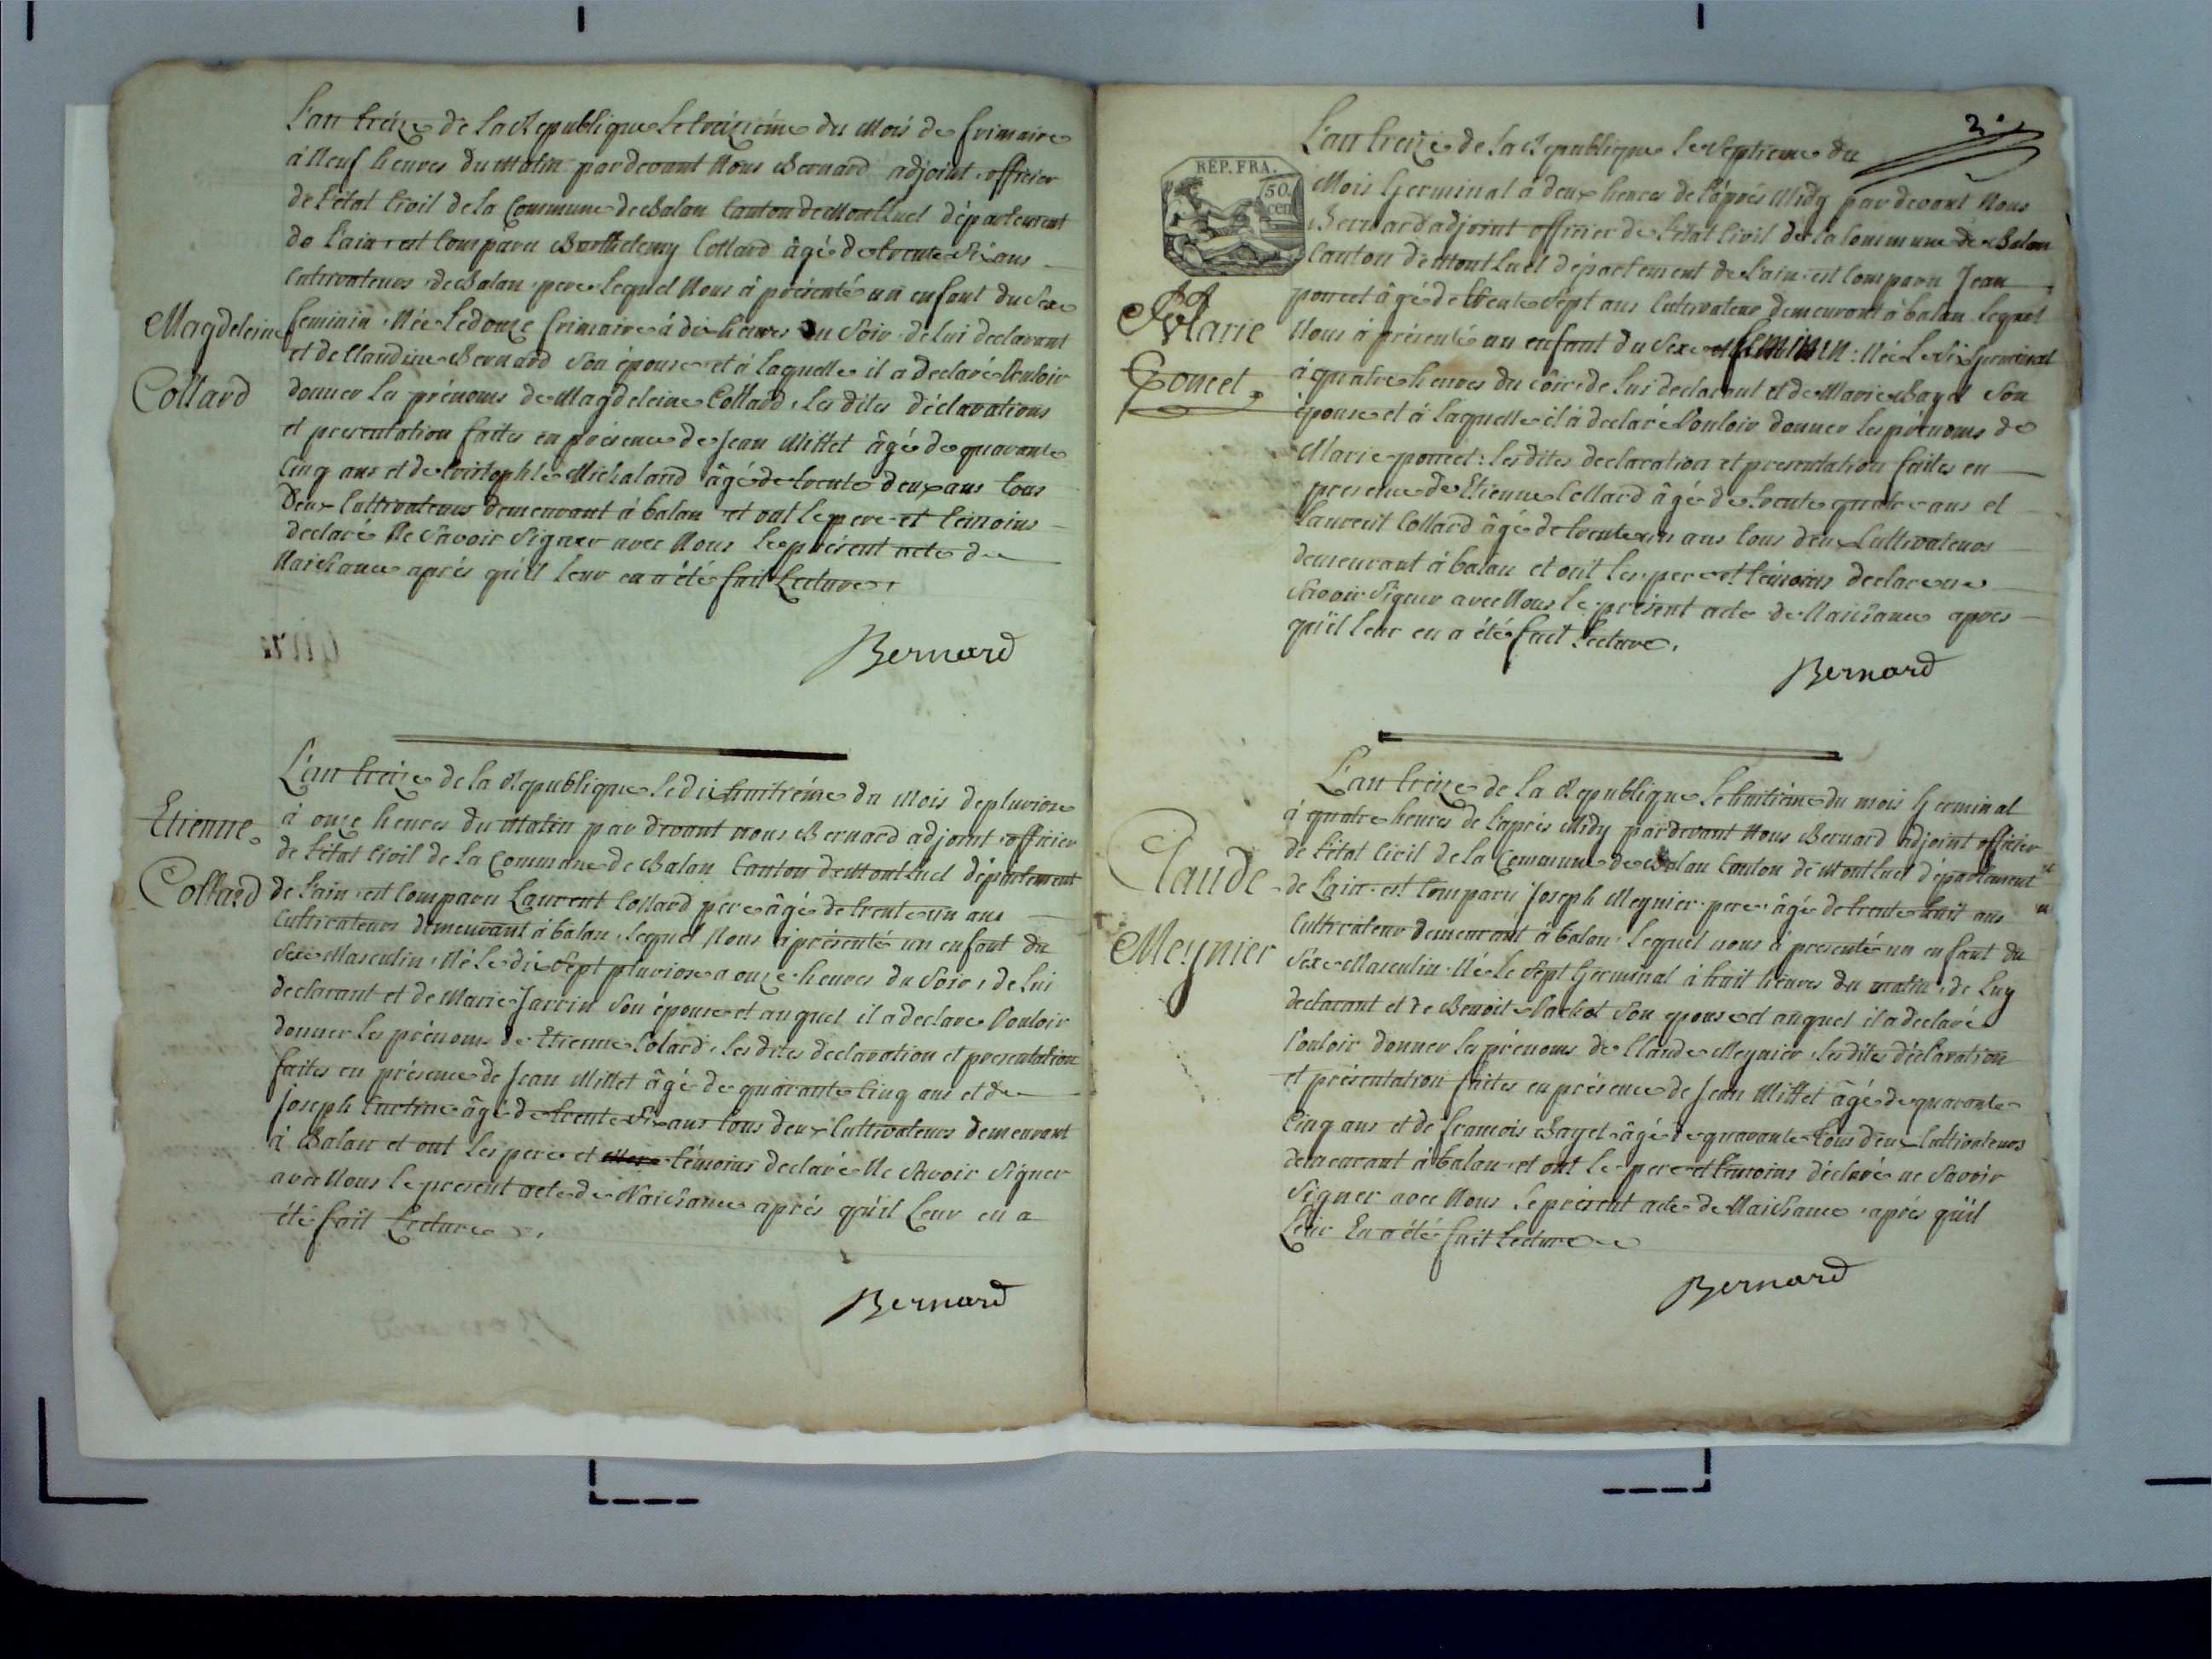 L'an treize de la Republique le treizième du Mois de frimaire
à Neuf heures du Matin par devant Nous Bernard adjoint officier
de l'état Civil de la Commune de Balan Canton de Montluel département
de l'ain est Comparu Barthelemy Collard âgé de trente Six ans
Cultivateurs de Balan pere lequel Nous à présenté un enfant du Sexe
Magdeleine
feminin Née Le douze frimaire à dix heures du Soir de lui declarant
et de Claudine Bernard Son épouse et à laquelle il a declaré Vouloir
Collard
donner les prénoms de Magdeleine Collard, les dites déclarations
et presentation faites en présence de Jean Mittet âgé de quarante
Cinq ans et de Cristophle Michaland âgé de trente deux ans tous
Deux Cultivateurs demeurant à balan et ont le pere et temoins
declaré Ne Savoir Signer avec Nous le présent acte de
Naissance aprés qu'il leur en a été fait Lecture,
Bernard
L'an treize de la Republique le dix huitiéme du Mois de pluviose
Etienne
à onze heures du Matin par devant nous Bernard adjoint officier
de l'état Civil de la Commune de Balan Canton de Montluel département
Collard
de l'ain est Comparu Laurent Collard pere âgé de trente un ans
Cultivateurs demeurant à balan, lequel Nous à présenté un enfant du
Sexe Masculin, Né Le dix Sept pluviose a onze heures du Soir, de lui
declarant et de Marie Jarrin Son épouse et auquel il a declaré Vouloir
donner les prénoms de Etienne Colard, les dites declaration et presentation
faites en présence de Jean Mittet âgé de quarante Cinq ans et de
Joseph âgé de trente Six ans tous deux Cultivateurs demeurant
à Balan et ont les pere et témoins declaré Ne Savoir Signer
avec Nous le present acte de Naissance aprés qu'il Leur en a
été fait Lecture.
Bernard
2.
REP. FRA.
50
cen
L'an treize de la Republique le Septieme du
Mois Germinal à deux heures de l'aprés Midy par devant Nous
Bernard adjoint officier de l'état Civil de la Commune de Balan
Canton de Montluel département de l'ain est Comparu Jean
poncet âgé de trente Sept ans Cultivateur demeurant à balan lequel
Marie
Nous à présenté un enfant du Sexe feminin : Née Le Six Germinal
Poncet
à quatre heures du soir de lui declarant et de Marie Bayet Son
épouse et à laquelle il à declaré Vouloir donner les prénoms de
Marie poncet : les dites declaration et presentation faites en
presence de Etienne Collard âgé de trente quatre ans et
Laurent Collard âgé de trente un ans tous deux Cultivateurs
demeurant à balan et ont les pere et témoins declare ne
Savoir Signer avec Nous le présent acte de Naissance apres
qu'il leur en a été fait Lecture.
Bernard
L'an treize de la Republique le huitième du mois Germinal
à quatre heures de l'aprés Midy par devant Nous Bernard adjoint officier
de l'état Civil de la Commune de Balan Canton de Montluel département
Claude
de L'ain est Comparu Joseph Meynier pere âgé de trente huit ans
Meynier
Cultivateur demeurant à balan lequel nous à presenté un enfant du
Sexe Masculin Né le Sept Germinal à huit heures du matin, de Luy
declarant et de Benoit Son epouse et auquel il a declaré
Vouloir donner les prénoms de Claude Meynier, les dites déclaration
et présentation faites en présence de Jean Mittet âgé de quarante
Cinq ans et de francois Bayet âgé de quarante tous deux Cultivateurs
demeurant à balan et ont le pere et témoins déclaré ne Savoir
Signer avec Nous le présent acte de Naissance aprés qu'il
Leur En a été fait Lecture
Bernard